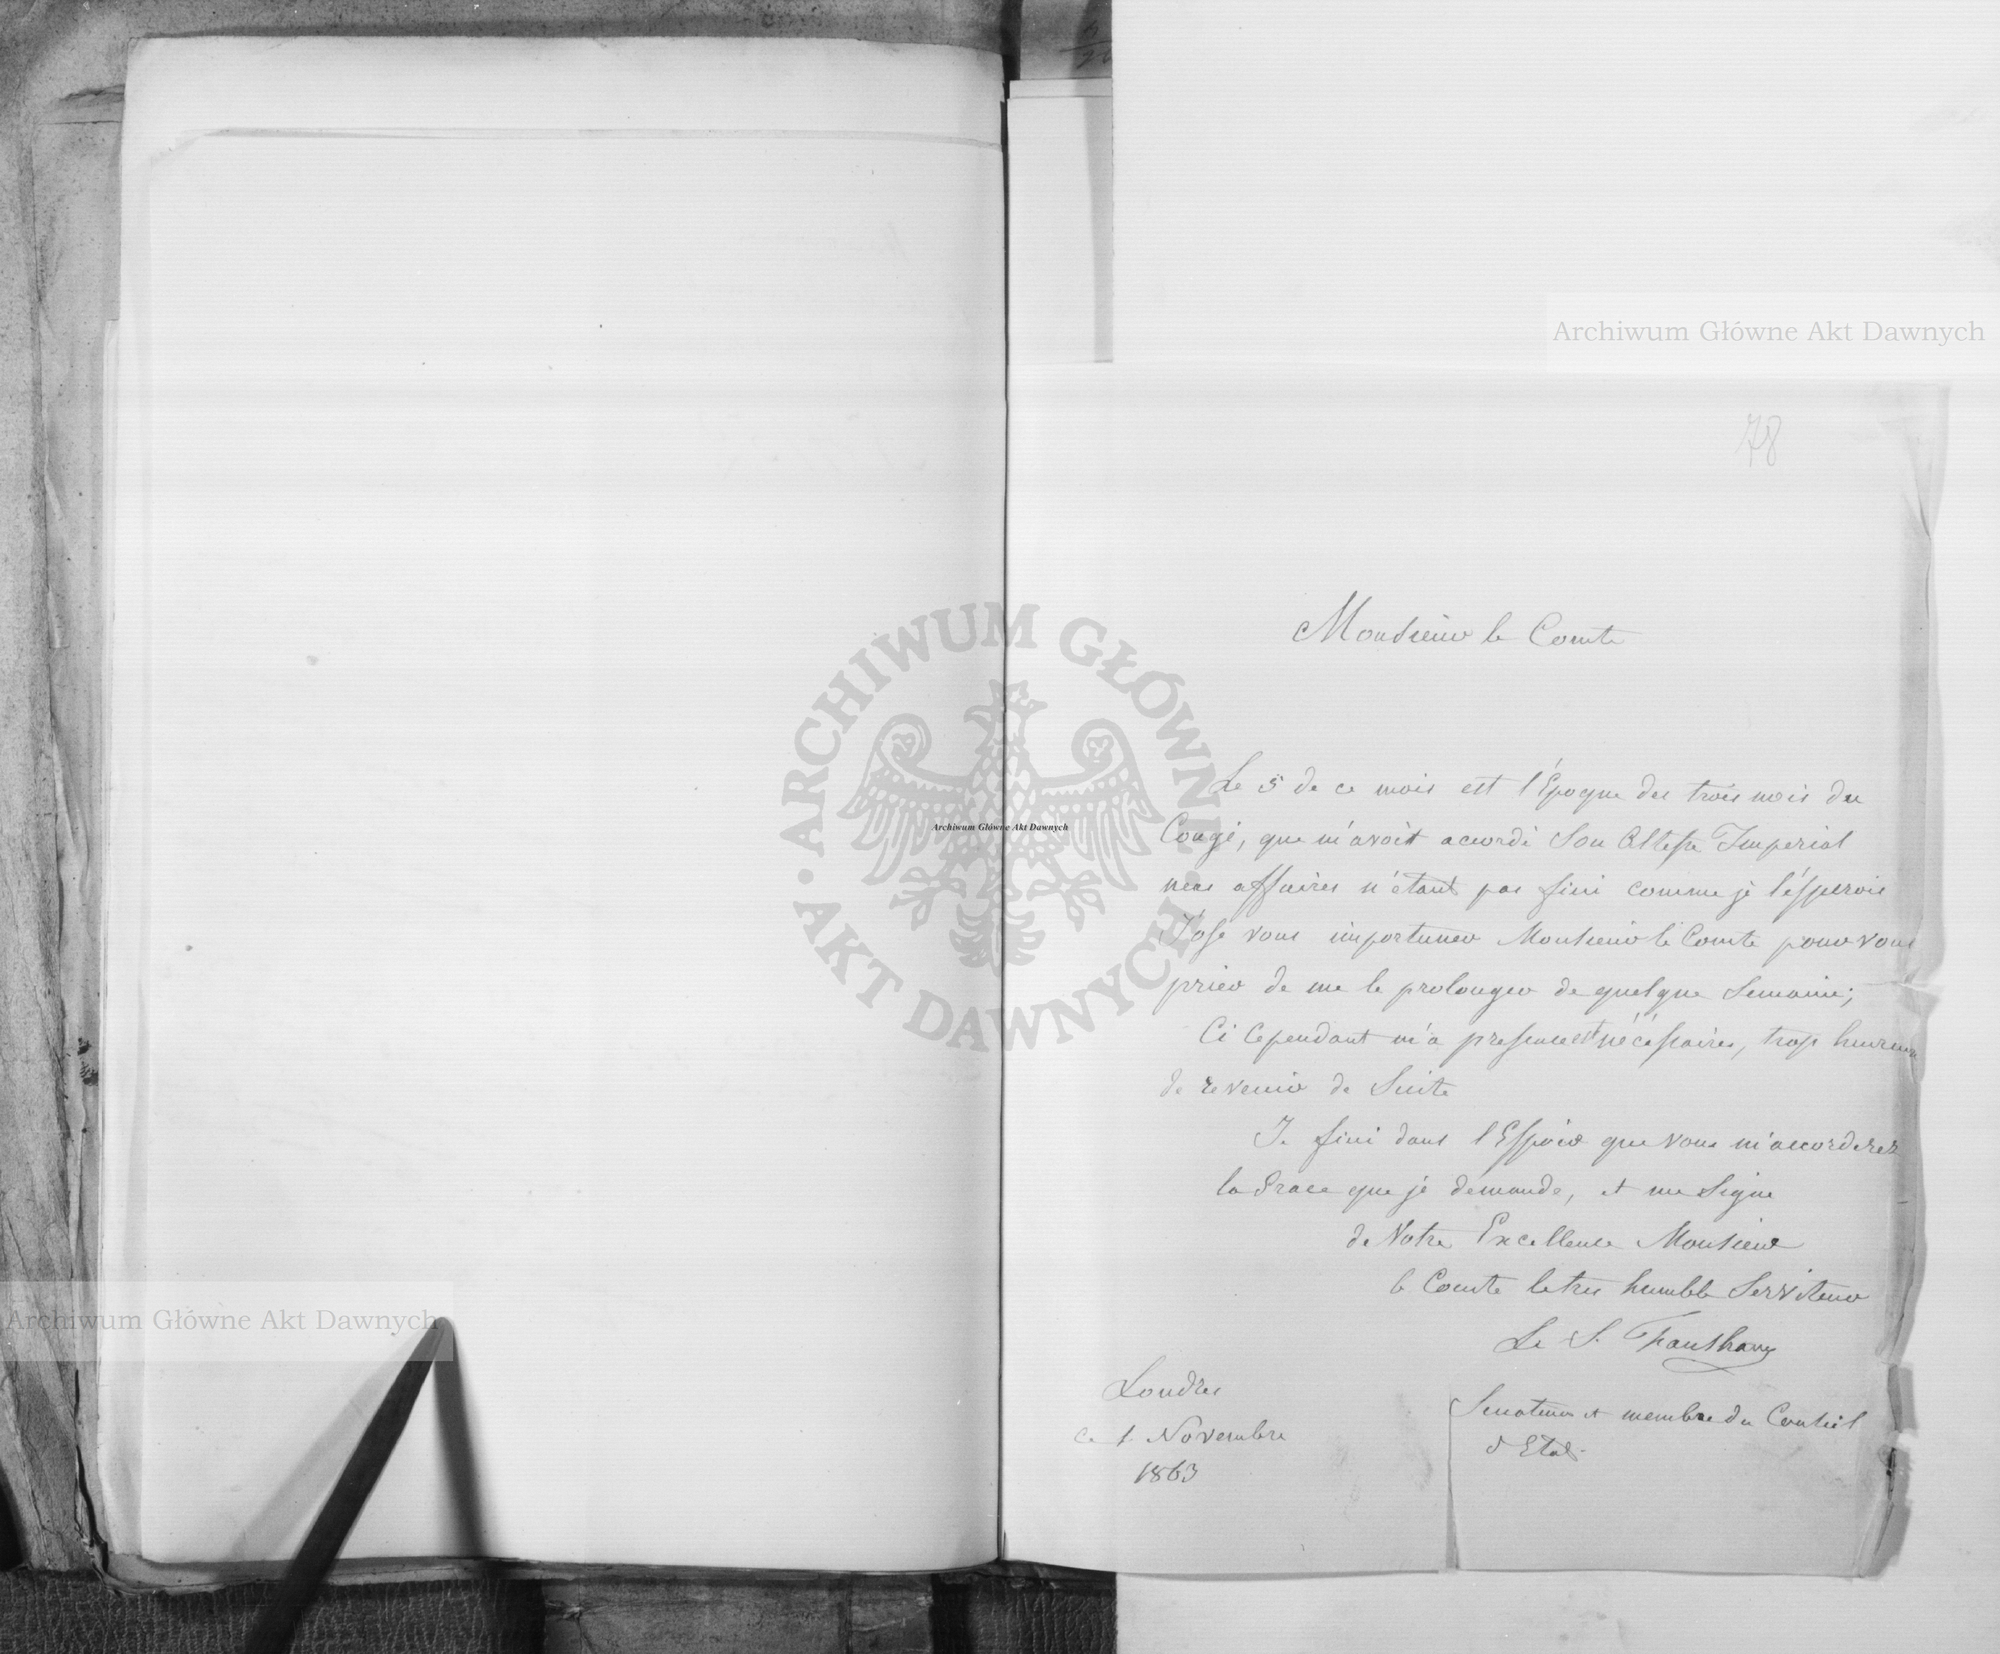 78
Monsieur le Comte
Le 5 de ce mois est l'Epoque des trois mois du
Congé, que m'avoit accordé Son Altesse Imperial
mes affaires n'étant pas fini comme je l'ésperois
J'ose vous importuner Monsieur le Comte pour vous
prier de me le prolonger de quelque Semaine;
Ci Cependant m'a presence est nécéssaires, trop heureux
de revenir de Suite
Je fini dans l'Espoir que vous m'accorderez
la Grace que je demande, et me Signe
de Votre Excellence Monsieur
le Comte le tres humble Serviteur
Le S.
Senateur et membre du Conseil
d'Etat.
Londres
ce 1 Novembre
1863
Archiwum Główne Akt Dawnych
Archiwum Główne Akt Dawnych
Archiwum Główne Akt Dawnych
ARCHIWUM GŁÓWNE AKT DAWNYCH